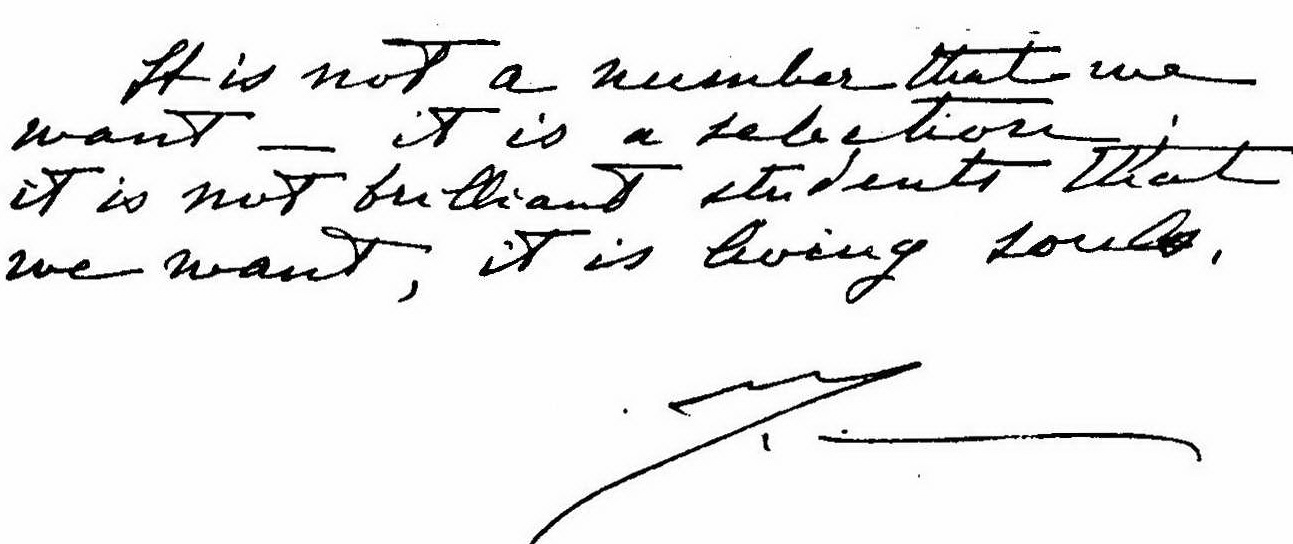 It is not a number that we
want — it is a selection;
it is not brilliant students that
we want, it is living souls.